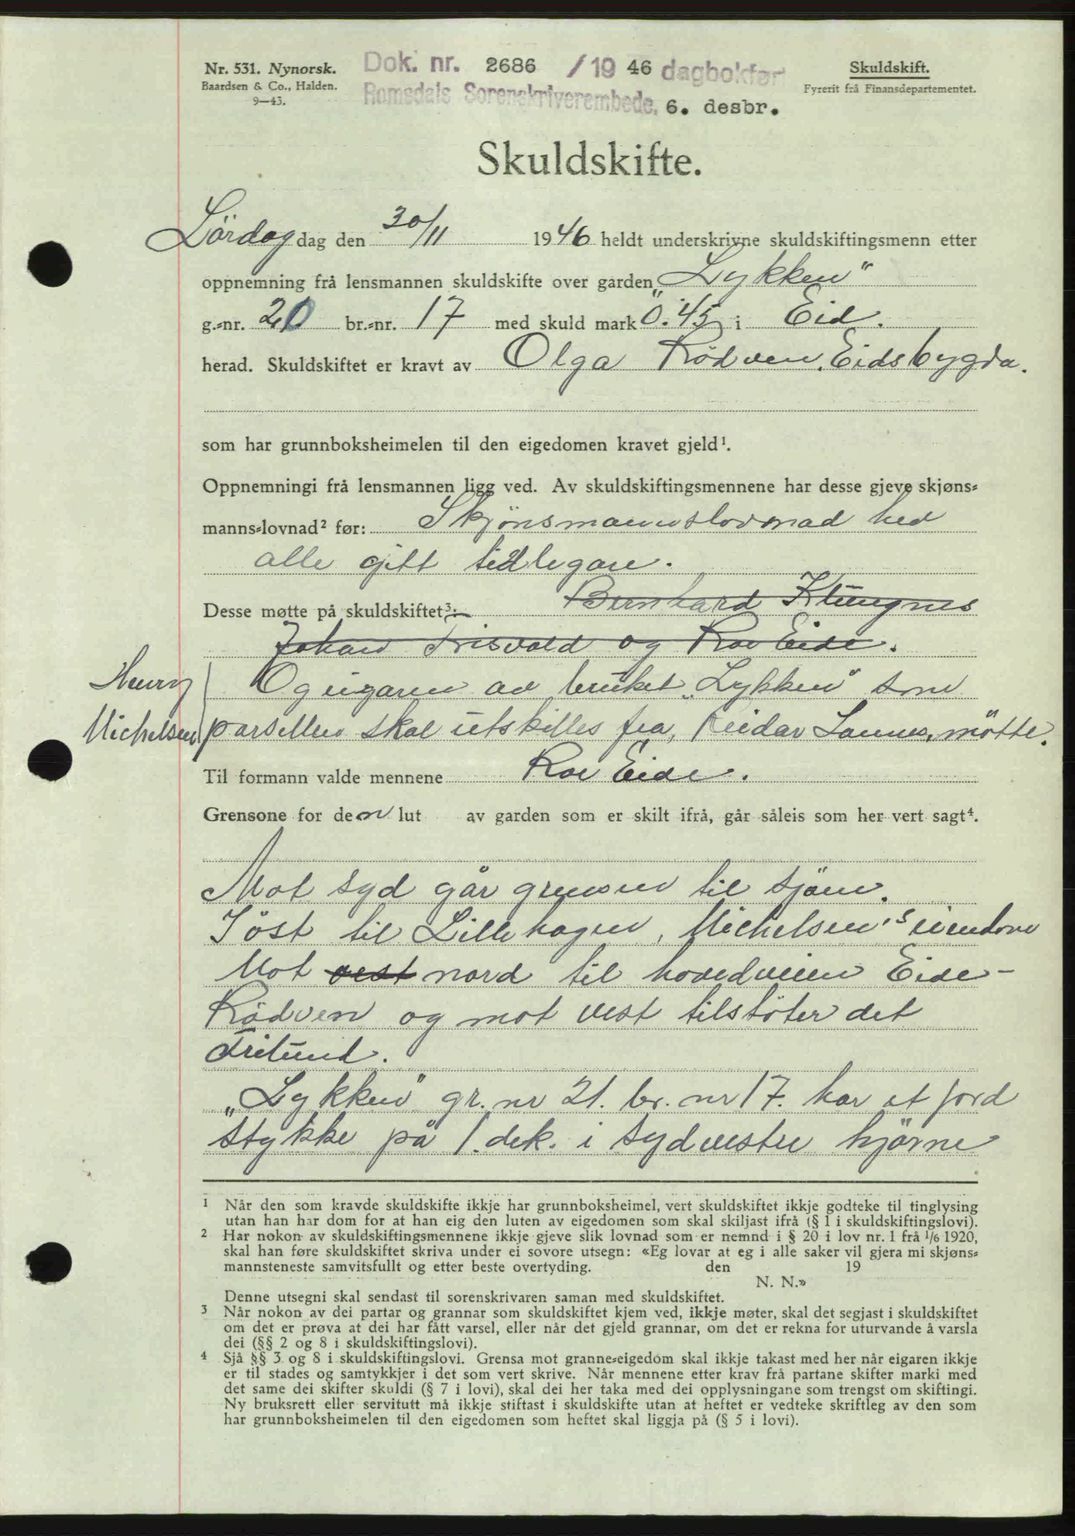 Nr. 531. Nynorsk.
Baardsen & Co., Halden.
9—43.
Dok. nr. 2686 /19 46 dagbokført
Romsdals Sorenskriverembede, 6. desbr.
Skuldskift.
Fyrerit frå Finansdepartementet.
Skuldskifte.
Lördag dag den 30/11 1946 heldt underskrivne skuldskiftingsmenn etter
oppnemning frå lensmannen skuldskifte over garden „Lykken"
g.-nr. 20 br.-nr. 17 med skuld mark 0.45 i Eid.
herad. Skuldskiftet er kravt av Olga Rödven. Eidsbygda.
som har grunnboksheimelen til den eigedomen kravet gjeld¹.
Oppnemningi frå lensmannen ligg ved. Av skuldskiftingsmennene har desse gjeve skjøns-
manns-lovnad² før: Skjönsmannslovnad hev
alle gitt tidlegare.
Desse møtte på skuldskiftet³: Bernhard Klungnes
Johan Frisvold og Roe Eide.
Henry
Og eigaren av bruket „Lykken" som
Michelsen parsellen skal utskilles fra, Reidar Sannes, mötte.
Til formann valde mennene Roe Eide.
Grensone for den lut av garden som er skilt ifrå, går såleis som her vert sagt⁴.
Mot syd går grensen til sjöen.
I öst til Lillehagen, Michelsen's eiendom
Mot vest nord til hovedveien Eide-
Rödven og mot vest tilstöter det
Frilund.
„Lykken" gr. nr 21. br. nr 17. har et jord
stykke på 1. dek. i sydvestre hjörne
1 Når den som kravde skuldskifte ikkje har grunnboksheimel, vert skuldskiftet ikkje godteke til tinglysing
utan han har dom for at han eig den luten av eigedomen som skal skiljast ifrå (§ 1 i skuldskiftingslovi).
2 Har nokon av skuldskiftingsmennene ikkje gjeve slik lovnad som er nemnd i § 20 i lov nr. 1 frå 1/6 1920,
skal han føre skuldskiftet skriva under ei sovore utsegn: «Eg lovar at eg i alle saker vil gjera mi skjøns-
mannsteneste samvitsfullt og etter beste overtyding. den 19
N. N.»
Denne utsegni skal sendast til sorenskrivaren saman med skuldskiftet.
3 Når nokon av dei partar og grannar som skuldskiftet kjem ved, ikkje møter, skal det segjast i skuldskiftet
om det er prøva at dei har fått varsel, eller når det gjeld grannar, om det er rekna for uturvande å varsla
dei (§§ 2 og 8 i skuldskiftingslovi).
4 Sjå §§ 3 og 8 i skuldskiftingslovi. Grensa mot granne-eigedom skal ikkje takast med her når eigaren ikkje
er til stades og samtykkjer i det som vert skrive. Når mennene etter krav frå partane skifter marki med
det same dei skifter skuldi (§ 7 i lovi), skal dei her taka med dei opplysningane som trengst om skiftingi.
Ny bruksrett eller servitutt må ikkje stiftast i skuldskifte utan at heftet er vedteke skriftleg av den som
har grunnboksheimelen til den eigedomen som heftet skal liggja på (§ 5 i lovi).